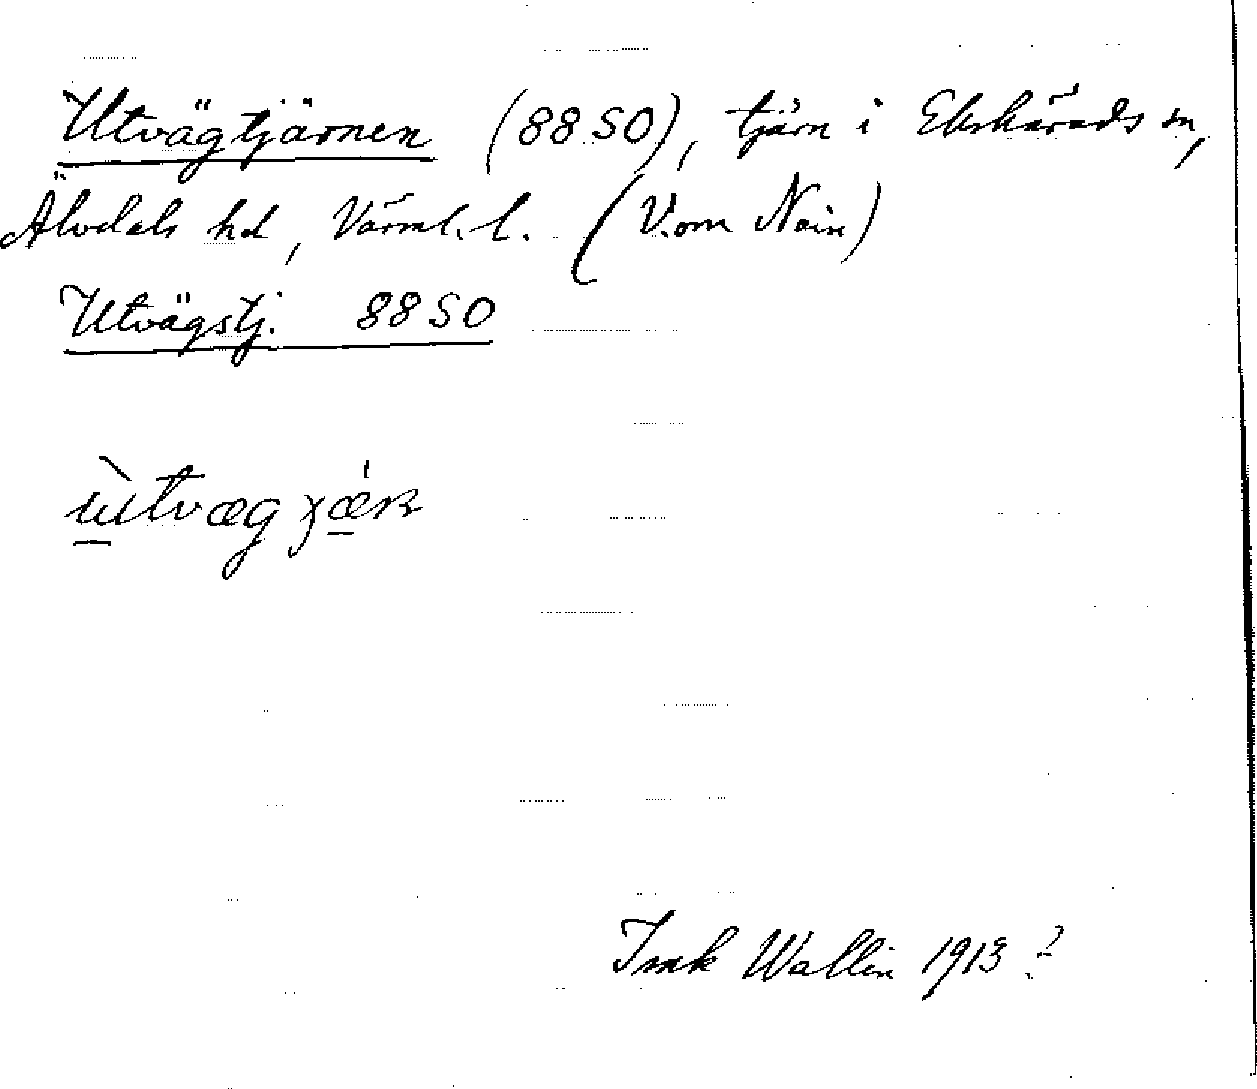 Utvägtjärnen (88 SO), tjärn i Ekshärads sn,
Älvdals hd, Värml. l. (V. om Nain)
Utvägstj. 88 SO
ùtvæg
Wallin 1913 ?